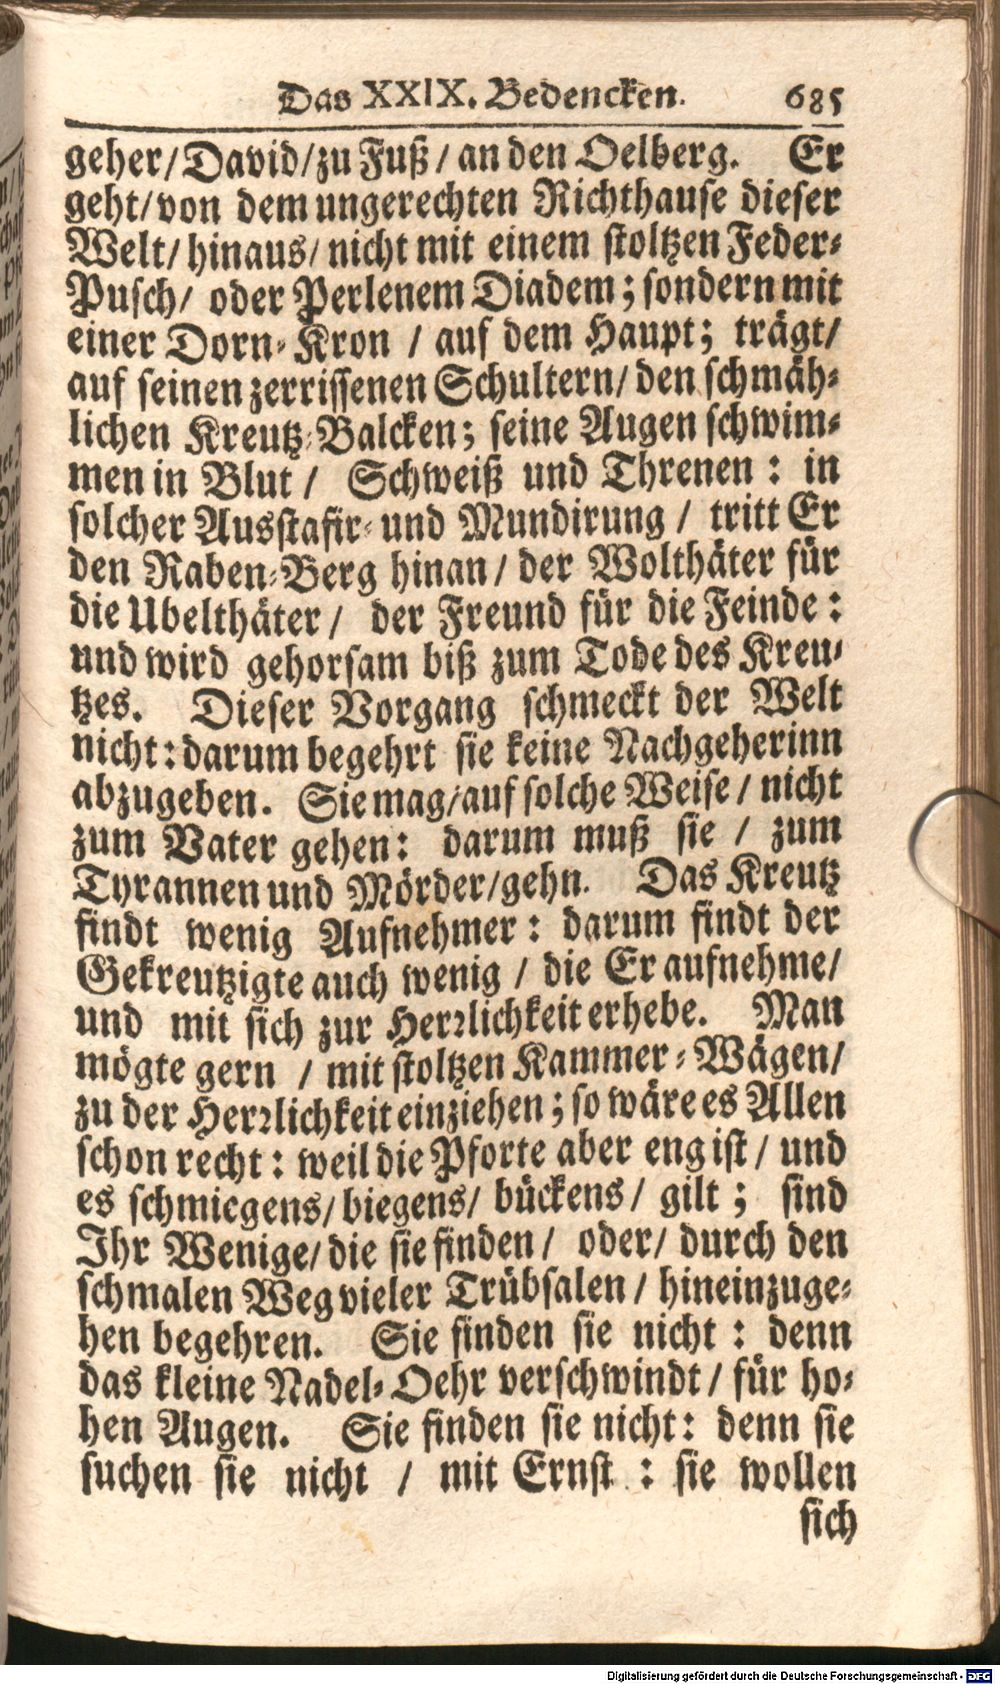 Das XXIX. Bedencken. 685
geher/David/zu Fuß/an den Oelberg. Er
geht/von dem ungerechten Richthause dieser
Welt/hinaus/nicht mit einem stoltzen Feder-
Pusch/ oder Perlenem Diadem; sondern mit
einer Dorn-Kron / auf dem Haupt; trägt/
auf seinen zerrissenen Schultern/ den schmäh-
lichen Kreutz-Balcken; seine Augen schwim-
men in Blut / Schweiß und Threnen: in
solcher Ausstafir- und Mundirung / tritt Er
den Raben-Berg hinan/ der Wolthäter für
die Ubelthäter/ der Freund für die Feinde:
und wird gehorsam biß zum Tode des Kreu-
tzes. Dieser Vorgang schmeckt der Welt
nicht: darum begehrt sie keine Nachgeherinn
abzugeben. Sie mag/auf solche Weise/ nicht
zum Vater gehen: darum muß sie / zum
Tyrannen und Mörder/gehn. Das Kreutz
findt wenig Aufnehmer: darum findt der
Gekreutzigte auch wenig / die Er aufnehme/
und mit sich zur Herrlichkeit erhebe. Man
mögte gern / mit stoltzen Kammer-Wägen/
zu der Herrlichkeit einziehen; so wäre es Allen
schon recht: weil die Pforte aber eng ist/ und
es schmiegens/biegens/ bückens/ gilt; sind
Ihr Wenige/die sie finden/ oder/ durch den
schmalen Weg vieler Trübsalen/ hineinzuge-
hen begehren. Sie finden sie nicht: denn
das kleine Nadel-Oehr verschwindt/ für ho-
hen Augen. Sie finden sie nicht: denn sie
suchen sie nicht / mit Ernst: sie wollen
sich
Digitalisierung gefördert durch die Deutsche Forschungsgemeinschaft - DFG